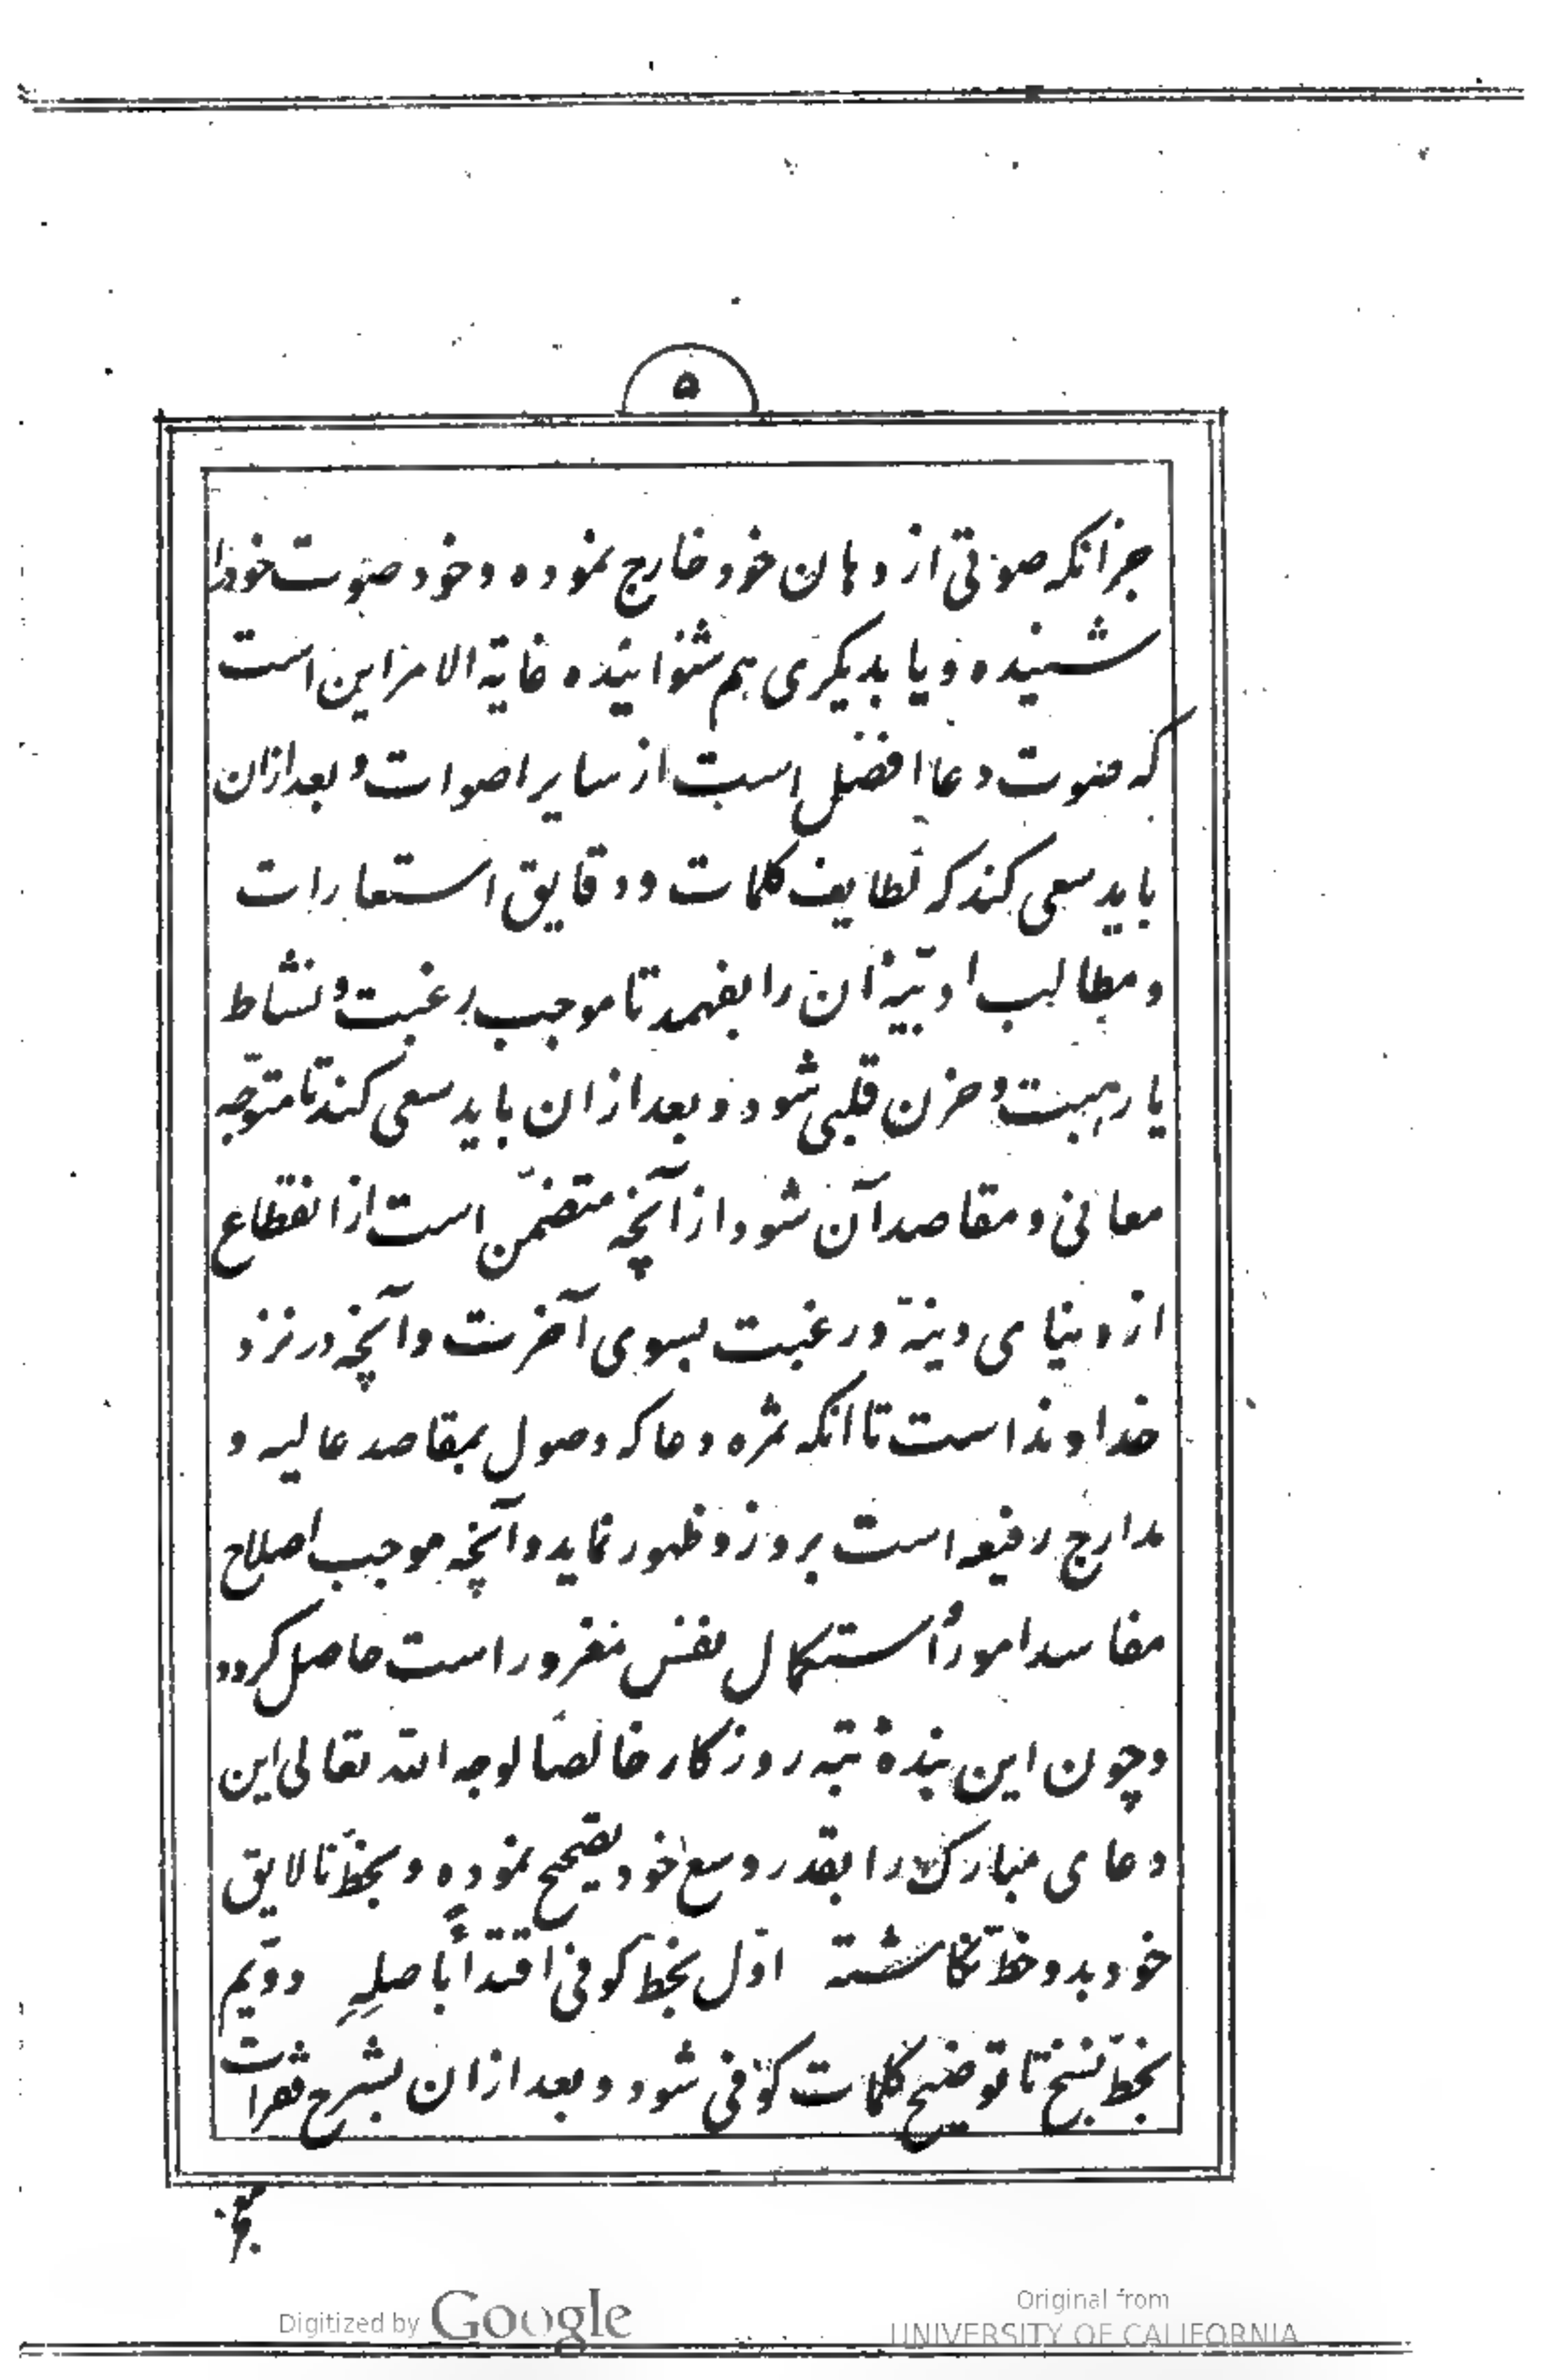 ۵
جز انکه صوتی از دهان خود خارج نموده و خود صوت خود را
شنیده و یا بدیکری هم شنوانیده غایة الامر این است
که صوت دعا افضل است از سایر اصوات و بعد ازان
باید سعی کند که لطایف کلمات و دقایق استعارات
و مطالب ادبیّهٔ ان را بفهمد تا موجب رغبت و نشاط
یا رهبت و حزن قلبی شود و بعد از ان باید سعی کند تا متوجّه
معانی و مقاصد آن شود از آنچه متضمّن است از انقطاع
از دنیای دنیّه و رغبت بسوی آخرت و آنچه در نزد
خداوند است تا انکه ثمره دعا که وصول بمقاصد عالیه و
مدارج رفیعه است بروز و ظهور نماید و آنچه موجب اصلاح
مفاسد امور و استکمال نفس مغرور است حاصل کردد
و چون این بندهٔ تبه روزکار خالصًا لوجه الله تعالی این
دعای مبارک را بقدر وسع خود تصحیح نموده و بخطّ نالایق
خود بدو خطّ نکاشته اوّل بخطّ کوفی اقتداءً باصلِهِ دویّم
بخطّ نسخ تا توضیح کلمات کوفی شود و بعد ازان بشرح فقرات
Digitized by Google
Original from
UNIVERSITY OF CALIFORNIA